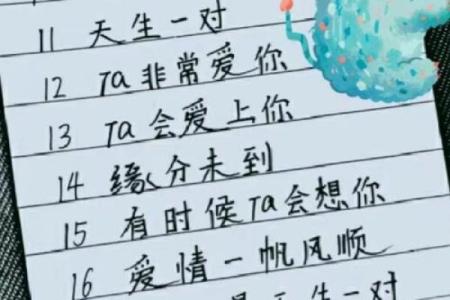 11 天生一对
12 Ta非常爱你
13 Ta会爱上你
14 缘分未到
15 有时候Ta会想你
16 爱情一帆风顺
是天生一对